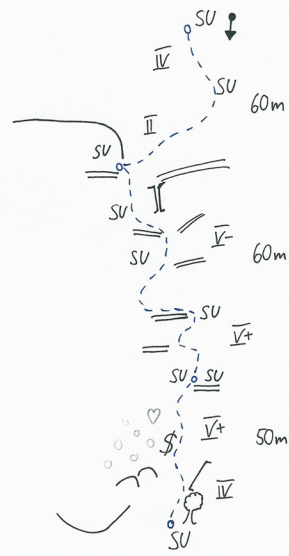 SU
IV
SU
60m
II
SU
SU
V-
SU
60m
SU
V+
SU SU
V+
$
50m
IV
SU